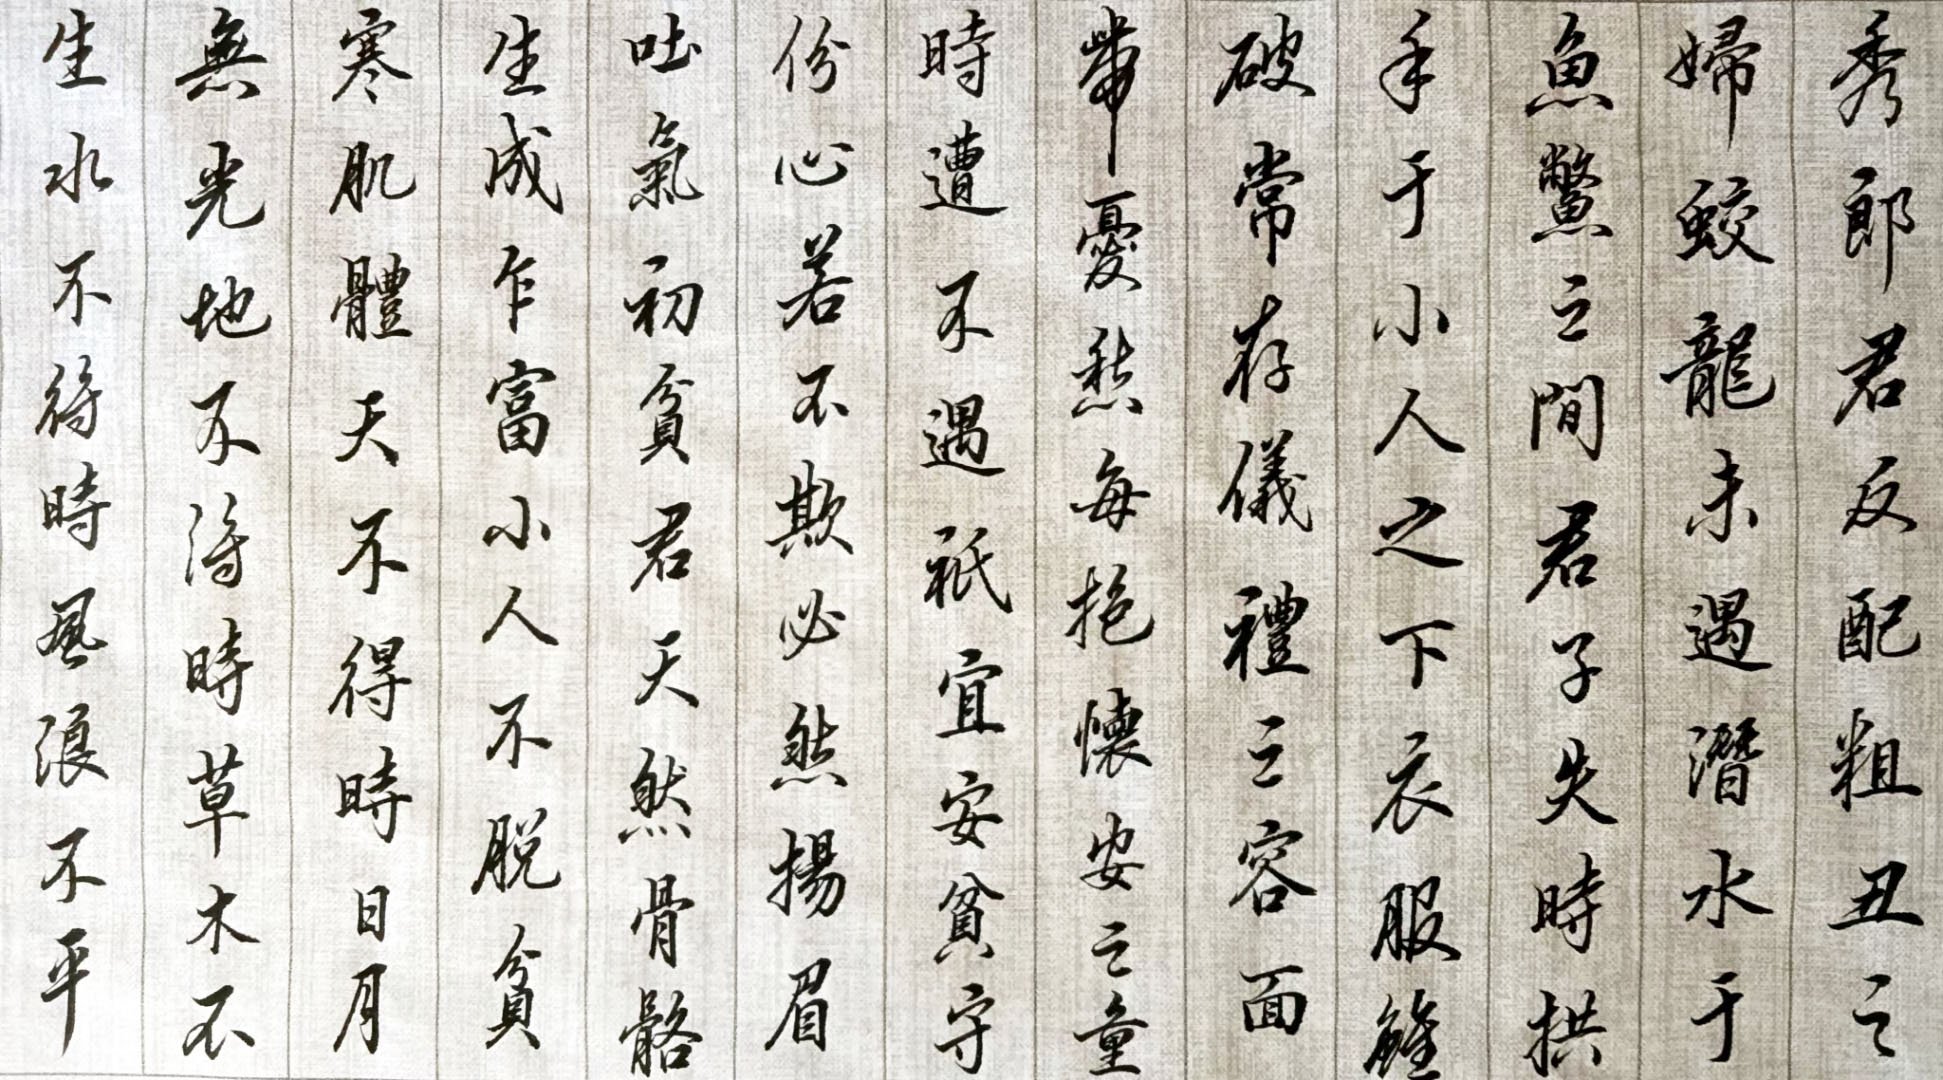 秀郎君反配粗丑之
婦蛟龍未遇潛水于
魚鱉之間君子失時拱
手于小人之下衣服雖
破常存儀禮之容面
帶憂愁每抱懷安之量
時遭不遇祇宜安貧守
份心若不欺必然揚眉
吐氣初貧君天然骨骼
生成乍富小人不脱貧
寒肌體天不得時日月
無光地不得時草木不
生水不得時風浪不平